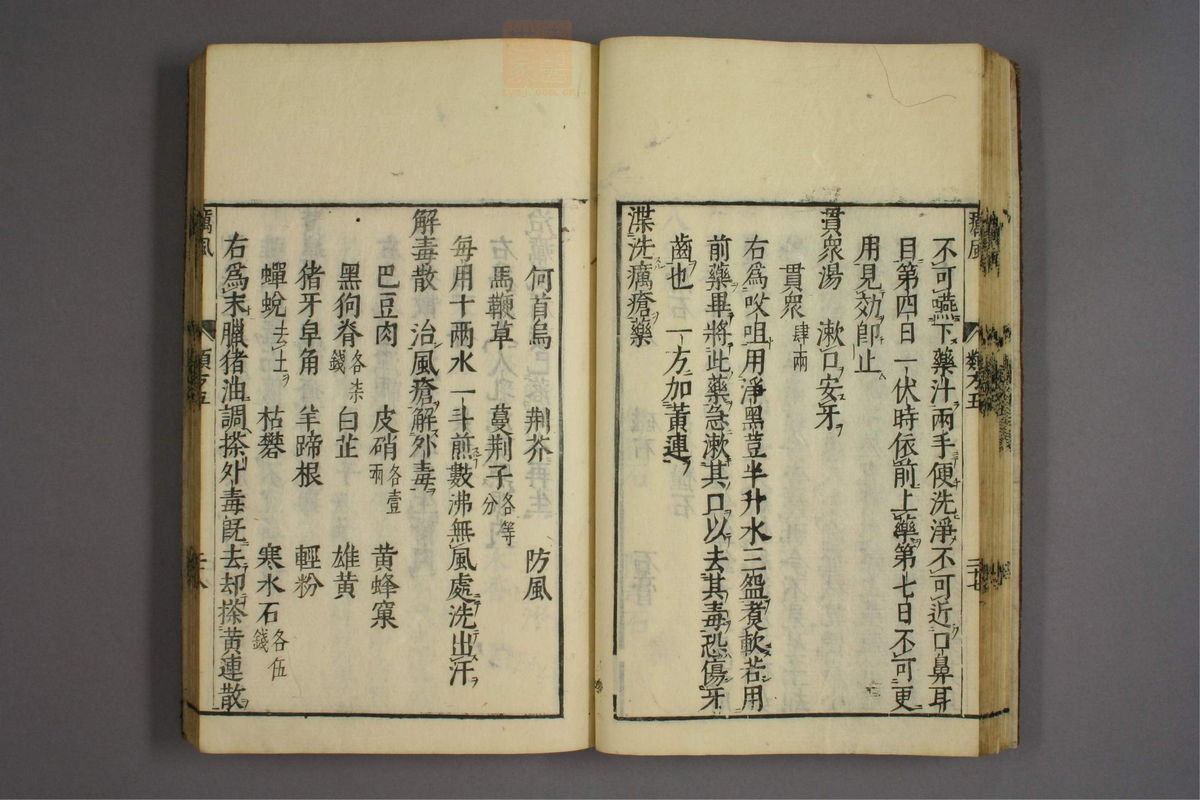 不可嚥下藥汁兩手便洗淨不可近口鼻耳
目第四日一伏時依前上藥第七日不可更
用見効即止
貫衆湯 漱口安牙
貫衆肆兩
右爲㕮咀用淨黑荳半升水三盌煑軟若用
前藥畢將此藥急漱其口以去其毒恐傷牙
齒也 一方加黃連
渫洗癘瘡藥
何首烏 荆芥 防風
馬鞭草 蔓荆子各等分
每用十兩水一斗煎數沸無風處洗出汗
解毒散 治風瘡解外毒
巴豆肉 皮硝各壹兩 黃蜂窠
黑狗脊各柒錢 白芷 雄黃
猪牙皁角 羊蹄根 輕粉
蟬蛻去土 枯礬 寒水石各伍錢
右爲末臘猪油調搽外毒旣去却搽黃連散
癘風 類方五